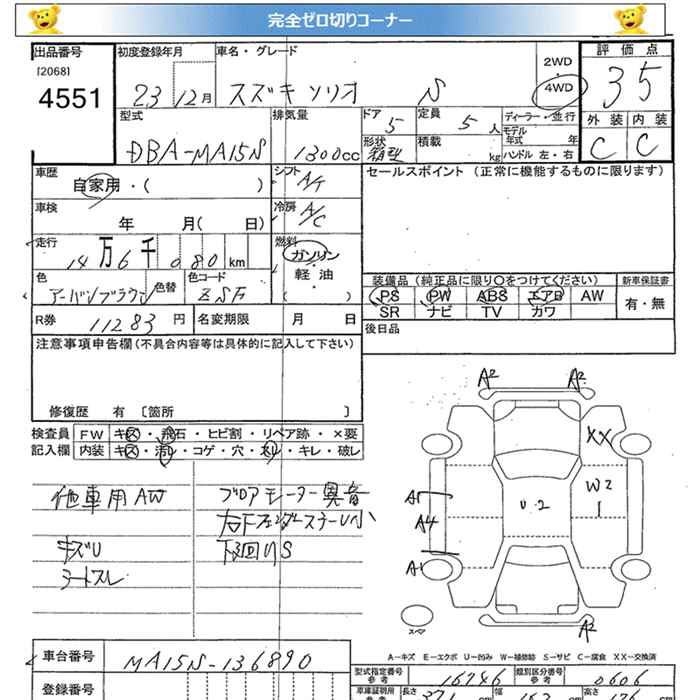 完全ゼロ切りコーナー
出品番号 初度登録年月 車名・グレード 2WD 評価点
[2068]
4551 23 12月 スズキ ソリオ S 4WD 35
型式 排気量 ドア 定員 ディーラー・並行 外装 内装
DBA-MA15S 1300cc 5 5人 モデル年式 年 C C
形状 箱型 積載 kg ハンドル 左・右
車歴 自家用・( ) シフト A/T セールスポイント (正常に機能するものに限ります)
車検 年 月( 日) 冷房 A/C
走行 14万6千080km 燃料 ガソリン・軽油 ( )
色 アーバンブラウン 色替 色コード ZSF
装備品 (純正品に限り○をつけてください) 新車保証書
PS PW ABS エアB AW 有・無
SR ナビ TV カワ
R券 11283円 名変期限 月 日 後日品
注意事項申告欄 (不具合内容等は具体的に記入して下さい)
修復歴 有 [箇所 ]
検査員 FW キズ・飛石・ヒビ割・リペア跡・×要
記入欄 内装 キズ・汚レ・コゲ・穴・スレ・キレ・破レ
他車用AW ブロアモーター異音
右下フェンダーステーU小
キズU 下回りS
シートスレ
A2 A2
XX
W2
A1 U・2 1
A4
A1
スペア A2
A-キズ E-エクボ U-凹み W-補修跡 S-サビ C-腐食 XX-交換済
車台番号 MA15S-136890
型式指定番号 参考 16746 類別区分番号 参考 0606
登録番号
車庫証明用 参考 長さ 371 cm 幅 163 cm 高さ 176